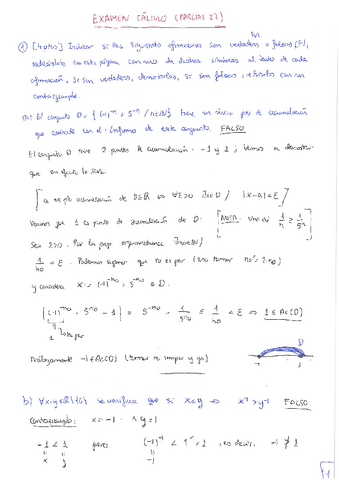 EXAMEN CÁLCULO (PARCIAL 2)
① [4 ptos] Indicar si las siguientes afirmaciones son verdaderas o falsas (F),
en esta página con uno de dichos símbolos al lado de cada
afirmación. Si son verdaderas, demostrarlas, si son falsas, con un
contraejemplo.
(a) El conjunto D = { (-1)^n + 5^-n / n∈ℕ } tiene un único pto de acumulación
que coincide con el ínfimo de este conjunto. FALSO
El conjunto D tiene 2 puntos de acumulación: -1 y 1; vamos a demostrar
que en efecto lo son.
Veamos que 1 es punto de acumulación de D. NOTA:
Sea ε>0. Por la prop. arquimediana ∃n₀∈ℕ /
1/n₀ < ε. Podemos suponer que n₀ es par (sino tomar n₀' = 2n₀)
y considera x := (-1)^n₀ + 5^-n₀ ∈ D.
|(-1)^n₀ + 5^-n₀ - 1| = 5^-n₀ = 1/5^n₀ ≤ 1/n₀ < ε ⇒ 1∈Ac(D)
Análogamente -1∈Ac(D) (tomar n impar y ya)
b) ∀x,y∈ℝ\{0} se verifica que si x<y ⇒ x^-1 > y^-1 FALSO
Contraejemplo: x = -1 y = 1
-1 < 1 pero (-1)^-1 < 1^-1 = 1, es decir, -1 ≯ 1
x y -1